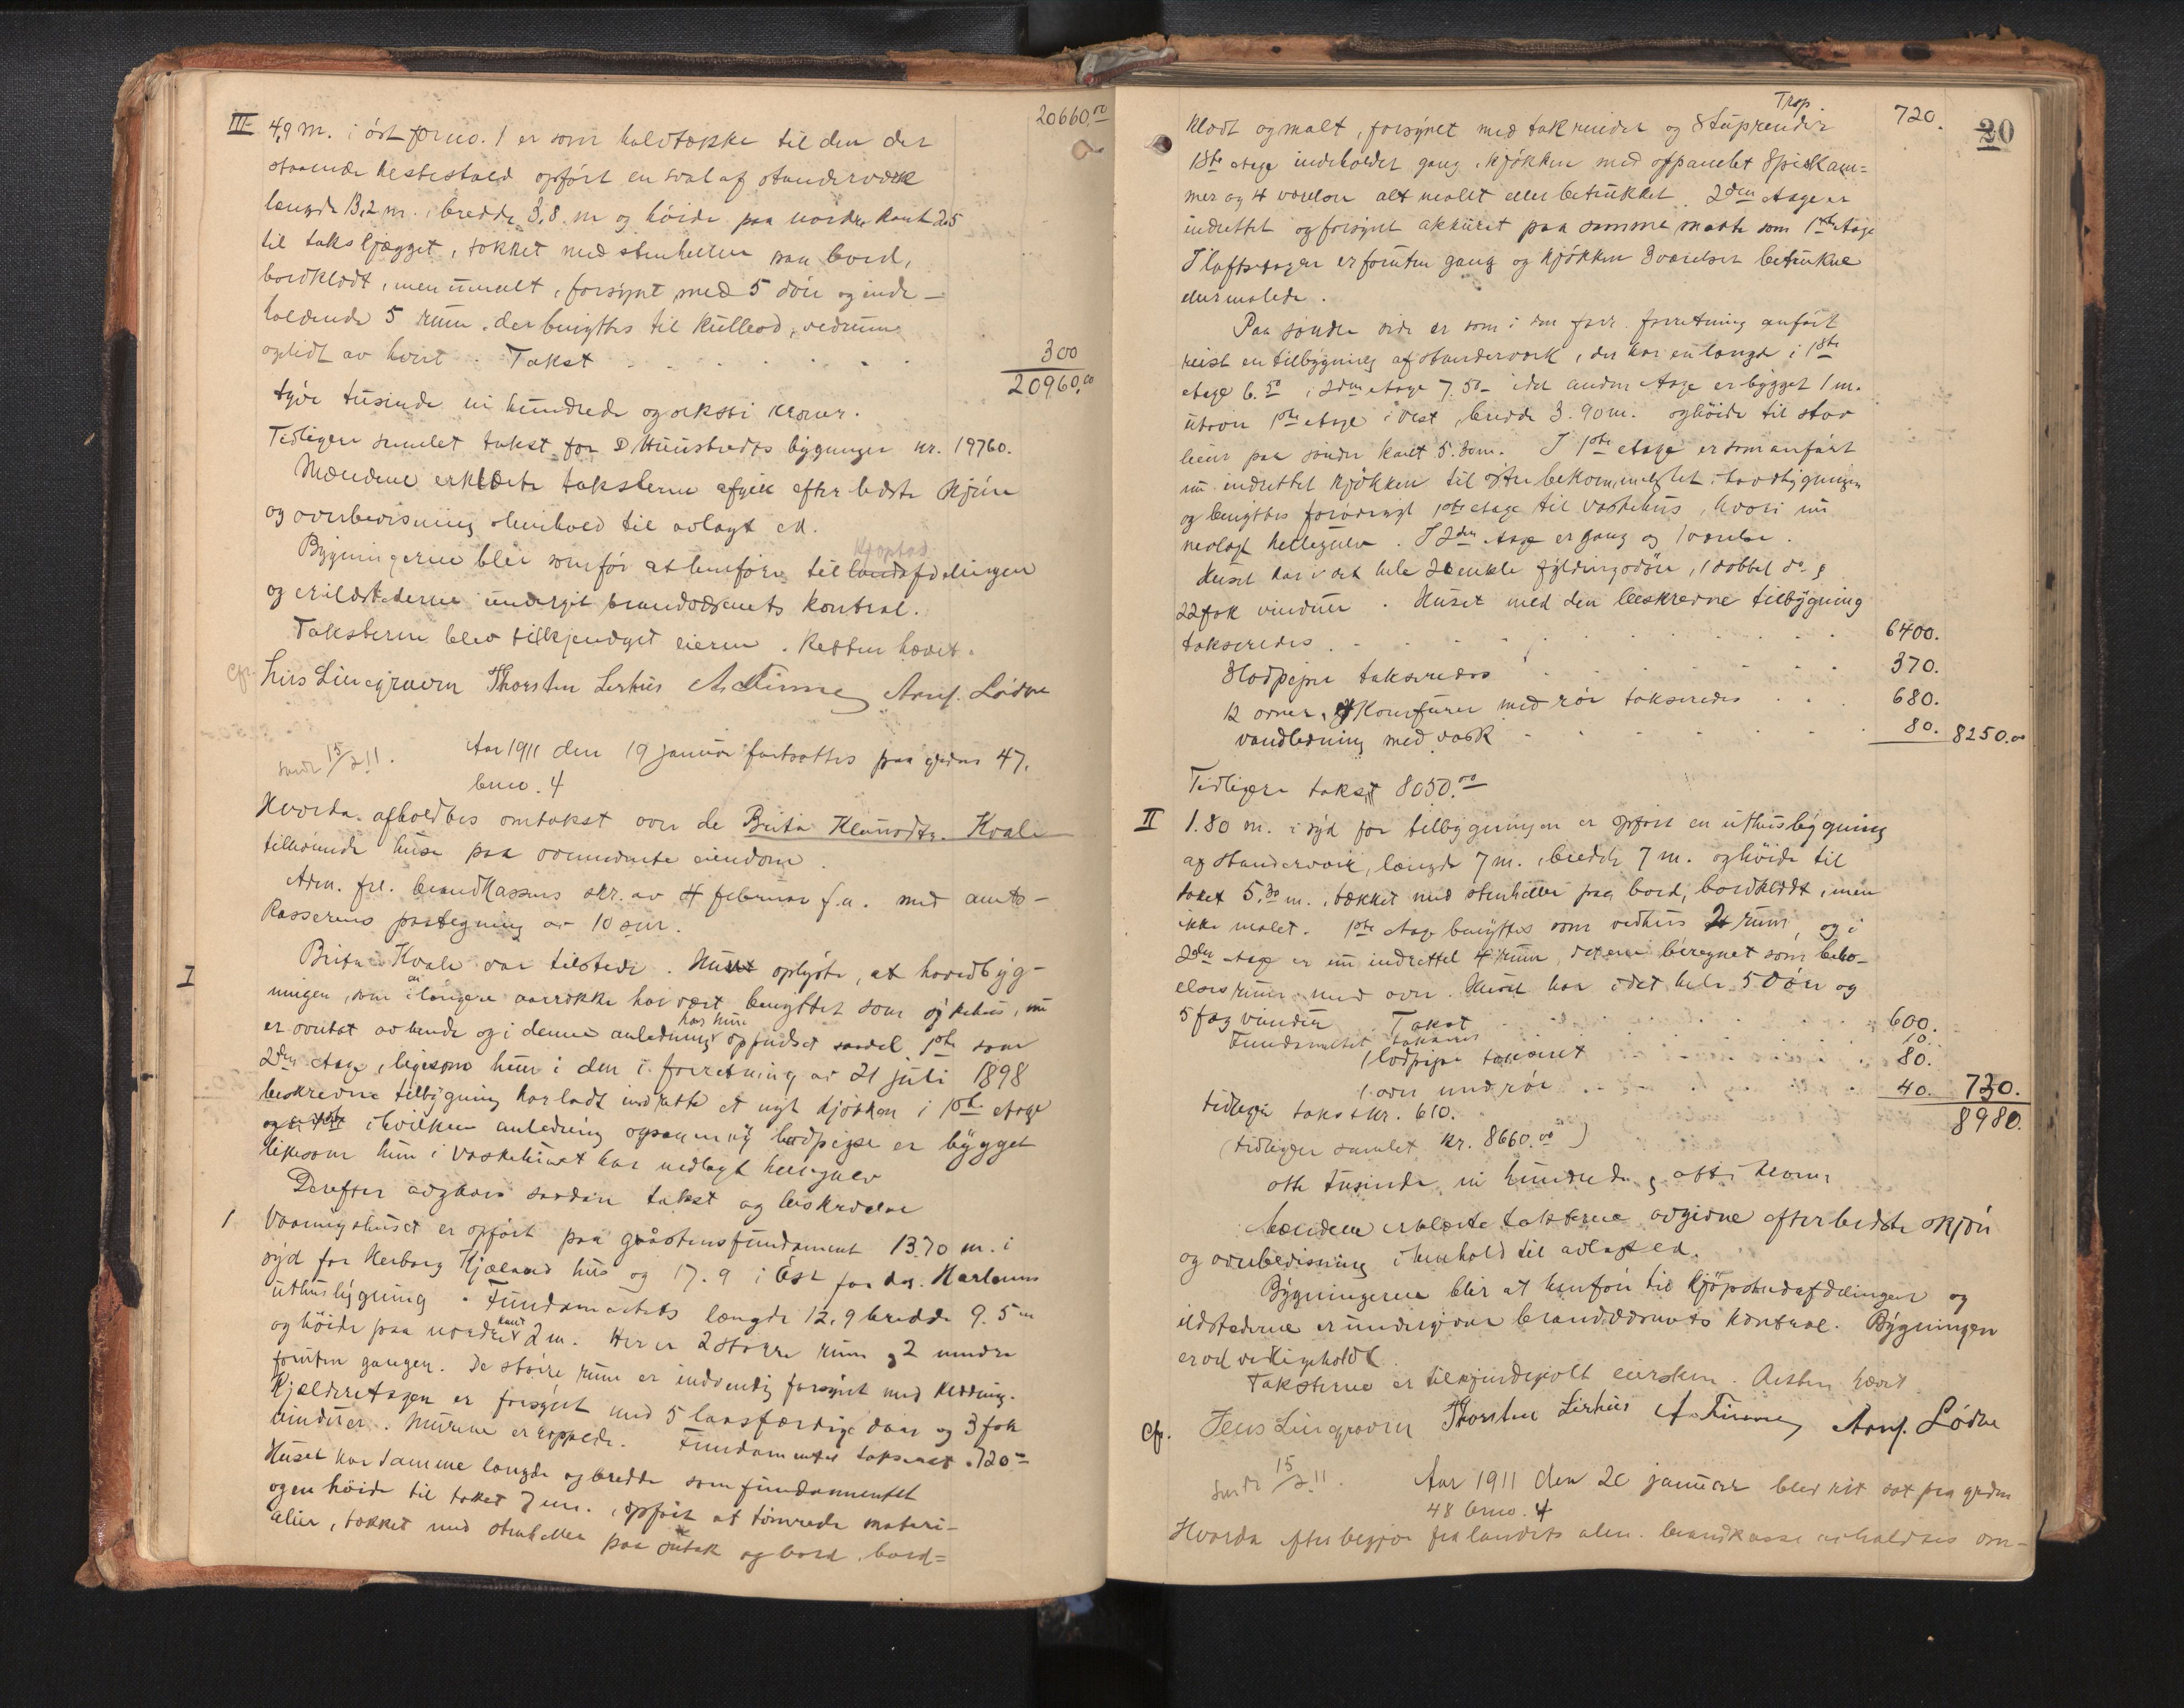 20660.00
III 4,9 m. i öst for no. 1 er som halvtække til den der
staaende hestestald opført en sval af standerværk
længde 13,2 m. bredde 3,8 m og höide paa nordre kant 2.5
til taks lægget, tækket med stenheller paa bord,
bordklædt, men umalt, forsynt med 5 döre og inde-
holdende 5 rum, der benyttes til kullrod, vedrum
og lidt av hvert. Takst . . . . . 300
20960.00
tyve tusinde ni hundrede og seksti kroner.
Tidligere samlet takst for D Huustvedts bygninger kr. 19760.
Mændene erklærte taksterne afgit efter bedste skjön
og overbevisning i henhold til avlagt ed.
Kjøpstad
Bygningerne blir som før at henføre til landsafdelingen
og er ildstederne undergit brandvæsenets kontrol.
Taksterne blev tilkjendgit eieren. Retten hævet.
cfr. Jens Lingraven Thorsten Lerhus A Finne Arnf. Lødve
sendt 15/2 11. Aar 1911 den 19 januar fortsattes paa gardnr 47,
brno. 4
Hvorda afholdtes omtakst over de Brita Klausdtr. Kvale
tilhørende huse paa ovennævnte eiendom.
Adm. frl. brandkassens skr. av 4 februar f.a. med amts-
kasserens paategning av 10 s.m.
I Brita Kvale var tilstede. Hun oplyste, at hovedbyg-
ningen, som i en længere aarrække har vært benyttet som sykehus, nu
er overtat av hende og i denne anledning har hun oppudset saavel 1ste som
2den etage, ligesom hun i den i forretning av 21 juli 1898
beskrevne tilbygning har ladt indrette et nyt kjøkken i 1ste etage
og i hvilken anledning ogsaa en ny lodpipe er bygget
likesom hun i vaskehuset har nedlagt hellegulv
Derefter avgaves saadan takst og beskrivelse
1 Vaaningshuset er opført paa graastensfundament 13.70 m. i
syd for Herborg Kjælands hus og 17.9 i Öst for dos. Harlems
uthusbygning. Fundamentets længde 12,9 bredde 9.5 m
og höide paa nordre kant 2 m. Her er 2 større rum og 2 mindre
foruten gangen. De større rum er indvendig forsynt med klædning.
Kjælderetagen er forsynt med 5 laasfærdige döre og 3 fok
vinduer. Murene er rappede. Fundamentet takseret . 720.00
Huset har samme længde og bredde som fundamentet
og en höide til taket 7 m. opført af tömrede materi-
alier, tækket med stenheller paa sutak og bord, bord=
20
Trap.
klædt og malt, forsynet med takrender og stuprender 720.
1ste etage indeholder gang kjøkken med afpanelet spiskam=
mer og 4 værelser alt malet eller betrukket. 2den etage er
indrettet og forsynt akkurat paa samme maate som 1ste etage
I loftsetagen er foruten gang og kjøkken 3 værelser betrukne
eller malede.
Paa søndre side er som i den forr. forretning anført
reist en tilbygning af standerværk, der har en længde i 1ste
etage 6.50 i 2den etage 7.50 idet anden etage er bygget 1 m.
utover 1ste etage i vest, bredde 3.90 m. og höide til stav
leien paa søndre kant 5.80 m. I 1ste etage er som anført
nu indrettet kjøkken til østre bekvemmelighet i hovedbygningen
og benyttes forøvrigt 1ste etage til vaskehus, hvori nu
nedlagt hellegulv. I 2den etage er gang og 1 værelse.
Huset har i det hele 20 enkle fyldingsdöre, 1 dobbel do &
22 fok vinduer. Huset med den beskrevne tilbygning
takseredes . . . . . . . 6400.
3 lodpiper takseredes . . . . . . 370.
12 ovner & Komfurer med rör takseredes . . 680.
vandledning med vask . . . . . . 80. 8250.00
Tidligere takst 8050.00
II 1.80 m. i syd for tilbygningen er opført en uthusbygning
af standerværk, længde 7 m. bredde 7 m. og höide til
taket 5.30 m. tækket med stenheller paa bord, bordklædt, men
ikke malet. 1ste etage benyttes som vedhus 2 rum, og i
2den etage er nu indrettet 4 rum, det ene beregnet som bebo-
elsesrum med ovn. Huset har i det hele 5 döre og
5 fag vinduer. Takst . . . . . 600.
Fundamentet takseres 10.
1 lodpipe takseret . . . . . 80.
1 ovn med rör . . . . . 40. 730.
tidligere takst kr. 610. 8980.
(tidligere samlet kr. 8660.00)
otte tusinde ni hundrede & otti kroner
Mændene erklærte taksterne avgivne efter bedste skjön
og overbevisning i henhold til avlagt ed.
Bygningerne blir at henføre til kjöpstadafdelingen og
ildstederne er undergivne brandvæsenets kontrol. Bygningen
er vel vedligeholdt.
Taksterne er tilkjendegivet eiersken. Retten hævet.
cfr. Jens Lingraven Thorsten Lerhus A Finne Arnf. Lødve
sendt 15/2 11. Aar 1911 den 20 januar blev ret sat paa grdnr
48 brno. 4
Hvorda efter begjær fra landets alm. brandkasse avholdtes om-